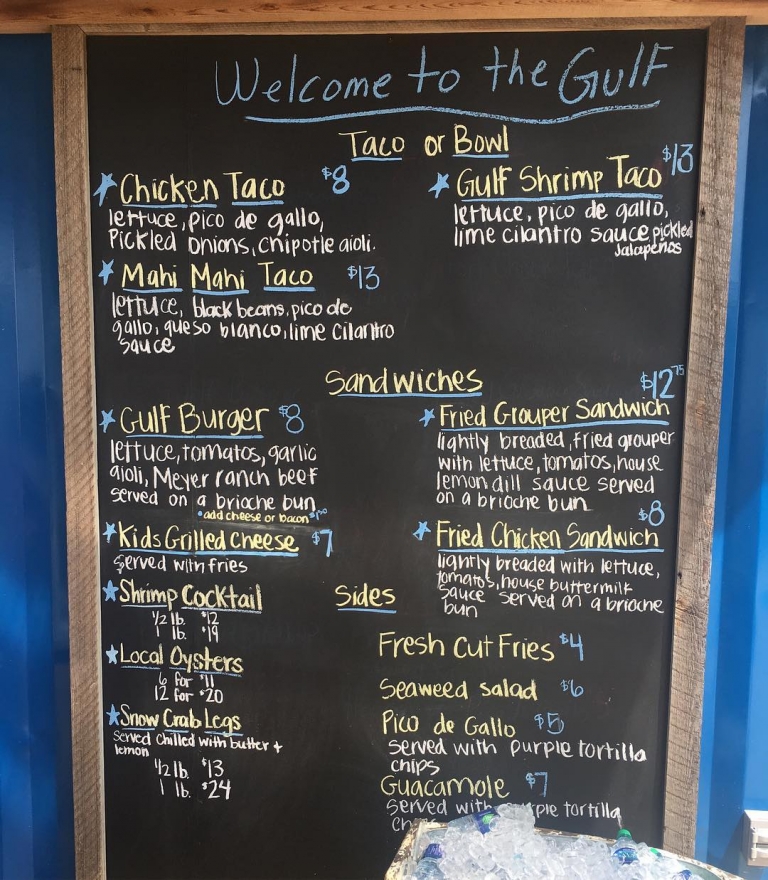 Welcome to the Gulf
Taco or Bowl
Chicken Taco $8
lettuce, pico de gallo,
Pickled onions, chipotle aioli.
Mahi Mahi Taco $13
lettuce, black beans, pico de
gallo, queso blanco, lime cilantro
sauce
Gulf Shrimp Taco $13
lettuce, pico de gallo,
lime cilantro sauce pickled
Jalapeños
Sandwiches
Gulf Burger $8
lettuce, tomatos, garlic
aioli, Meyer ranch beef
served on a brioche bun
•add cheese or bacon
Kids Grilled Cheese $7
served with fries
Shrimp Cocktail
1/2 lb. $12
1 lb. $19
Local Oysters
6 for $11
12 for $20
Snow Crab Legs
Served chilled with butter +
lemon
1/2 lb. $13
1 lb. $24
$12.75
Fried Grouper Sandwich
lightly breaded, fried grouper
with lettuce, tomatos, house
lemon dill sauce served
on a brioche bun
$8
Fried Chicken Sandwich
lightly breaded with lettuce,
tomatos, house buttermilk
sauce served on a brioche
bun
Sides
Fresh Cut Fries $4
Seaweed salad $6
Pico de Gallo $5
served with purple tortilla
chips
Guacamole $7
served with purple tortilla